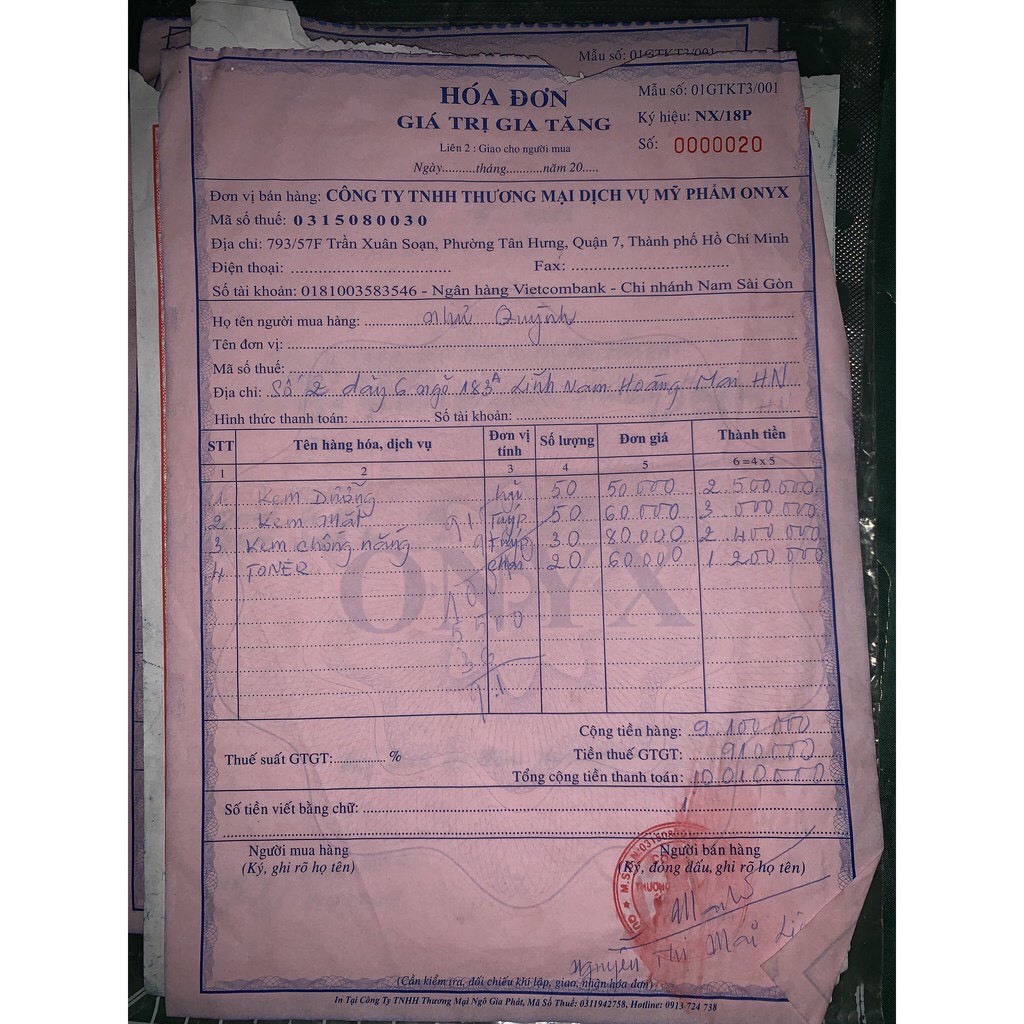 Mẫu số: 01GTKT3/001
HÓA ĐƠN
GIÁ TRỊ GIA TĂNG
Liên 2 : Giao cho người mua
Ngày..........tháng...........năm 20.....
Mẫu số: 01GTKT3/001
Ký hiệu: NX/18P
Số: 0000020
Đơn vị bán hàng: CÔNG TY TNHH THƯƠNG MẠI DỊCH VỤ MỸ PHẨM ONYX
Mã số thuế: 0315080030
Địa chỉ: 793/57F Trần Xuân Soạn, Phường Tân Hưng, Quận 7, Thành phố Hồ Chí Minh
Điện thoại: .................................. Fax: ..................................
Số tài khoản: 0181003583546 - Ngân hàng Vietcombank - Chi nhánh Nam Sài Gòn
Họ tên người mua hàng: Như Quỳnh
Tên đơn vị:
Mã số thuế:
Địa chỉ: Số 2 dãy 6 ngõ 183A Lĩnh Nam Hoàng Mai HN
Hình thức thanh toán: ........................ Số tài khoản:
STT Tên hàng hóa, dịch vụ Đơn vị tính Số lượng Đơn giá Thành tiền
1 2 3 4 5 6 = 4 x 5
1 Kem Dưỡng 50 50.000 2 500.000
2 Kem Mắt Tuýp 50 60.000 3 000.000
3 Kem chống nắng Tuýp 30 80.000 2 400 000
4 TONER chai 20 60.000 1 200 000
ONYX
Cộng tiền hàng: 9 100 000
Thuế suất GTGT:.............. % Tiền thuế GTGT: 910000
Tổng cộng tiền thanh toán: 10 010 000
Số tiền viết bằng chữ:
Người mua hàng Người bán hàng
(Ký, ghi rõ họ tên) (Ký, đóng dấu, ghi rõ họ tên)
THƯƠNG
Nguyễn Thị Mai
(Cần kiểm tra, đối chiếu khi lập, giao, nhận hóa đơn)
In Tại Công Ty TNHH Thương Mại Ngô Gia Phát, Mã Số Thuế: 0311942758, Hotline: 0913 724 738